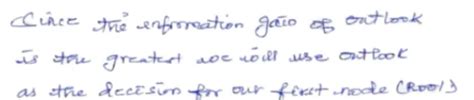 Since the information gain of outlook
is the greatest we will use outlook
as the decision for our first node (Root)